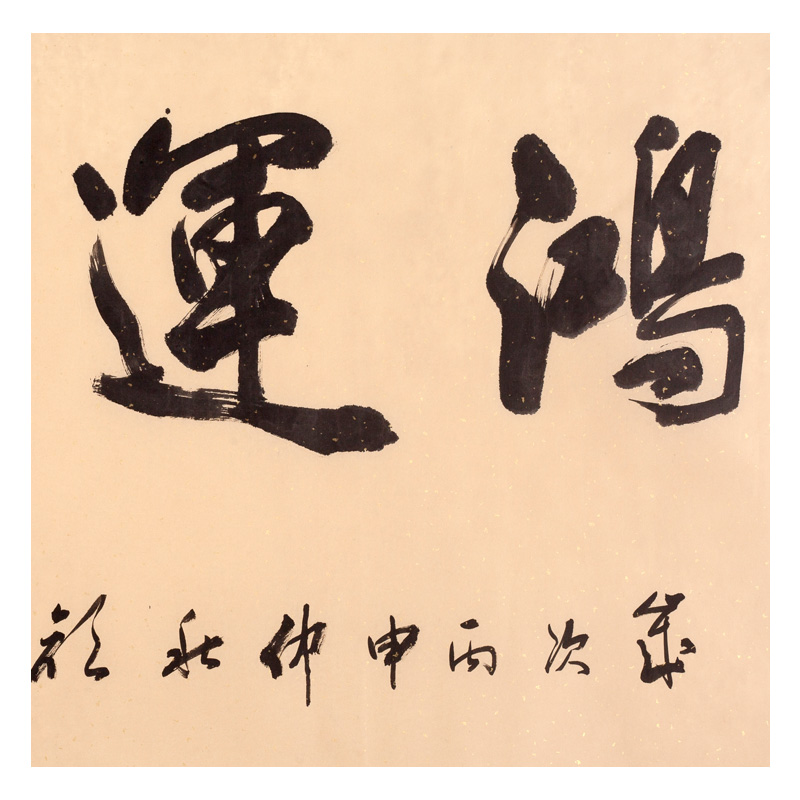 鴻運
歲次丙申仲秋